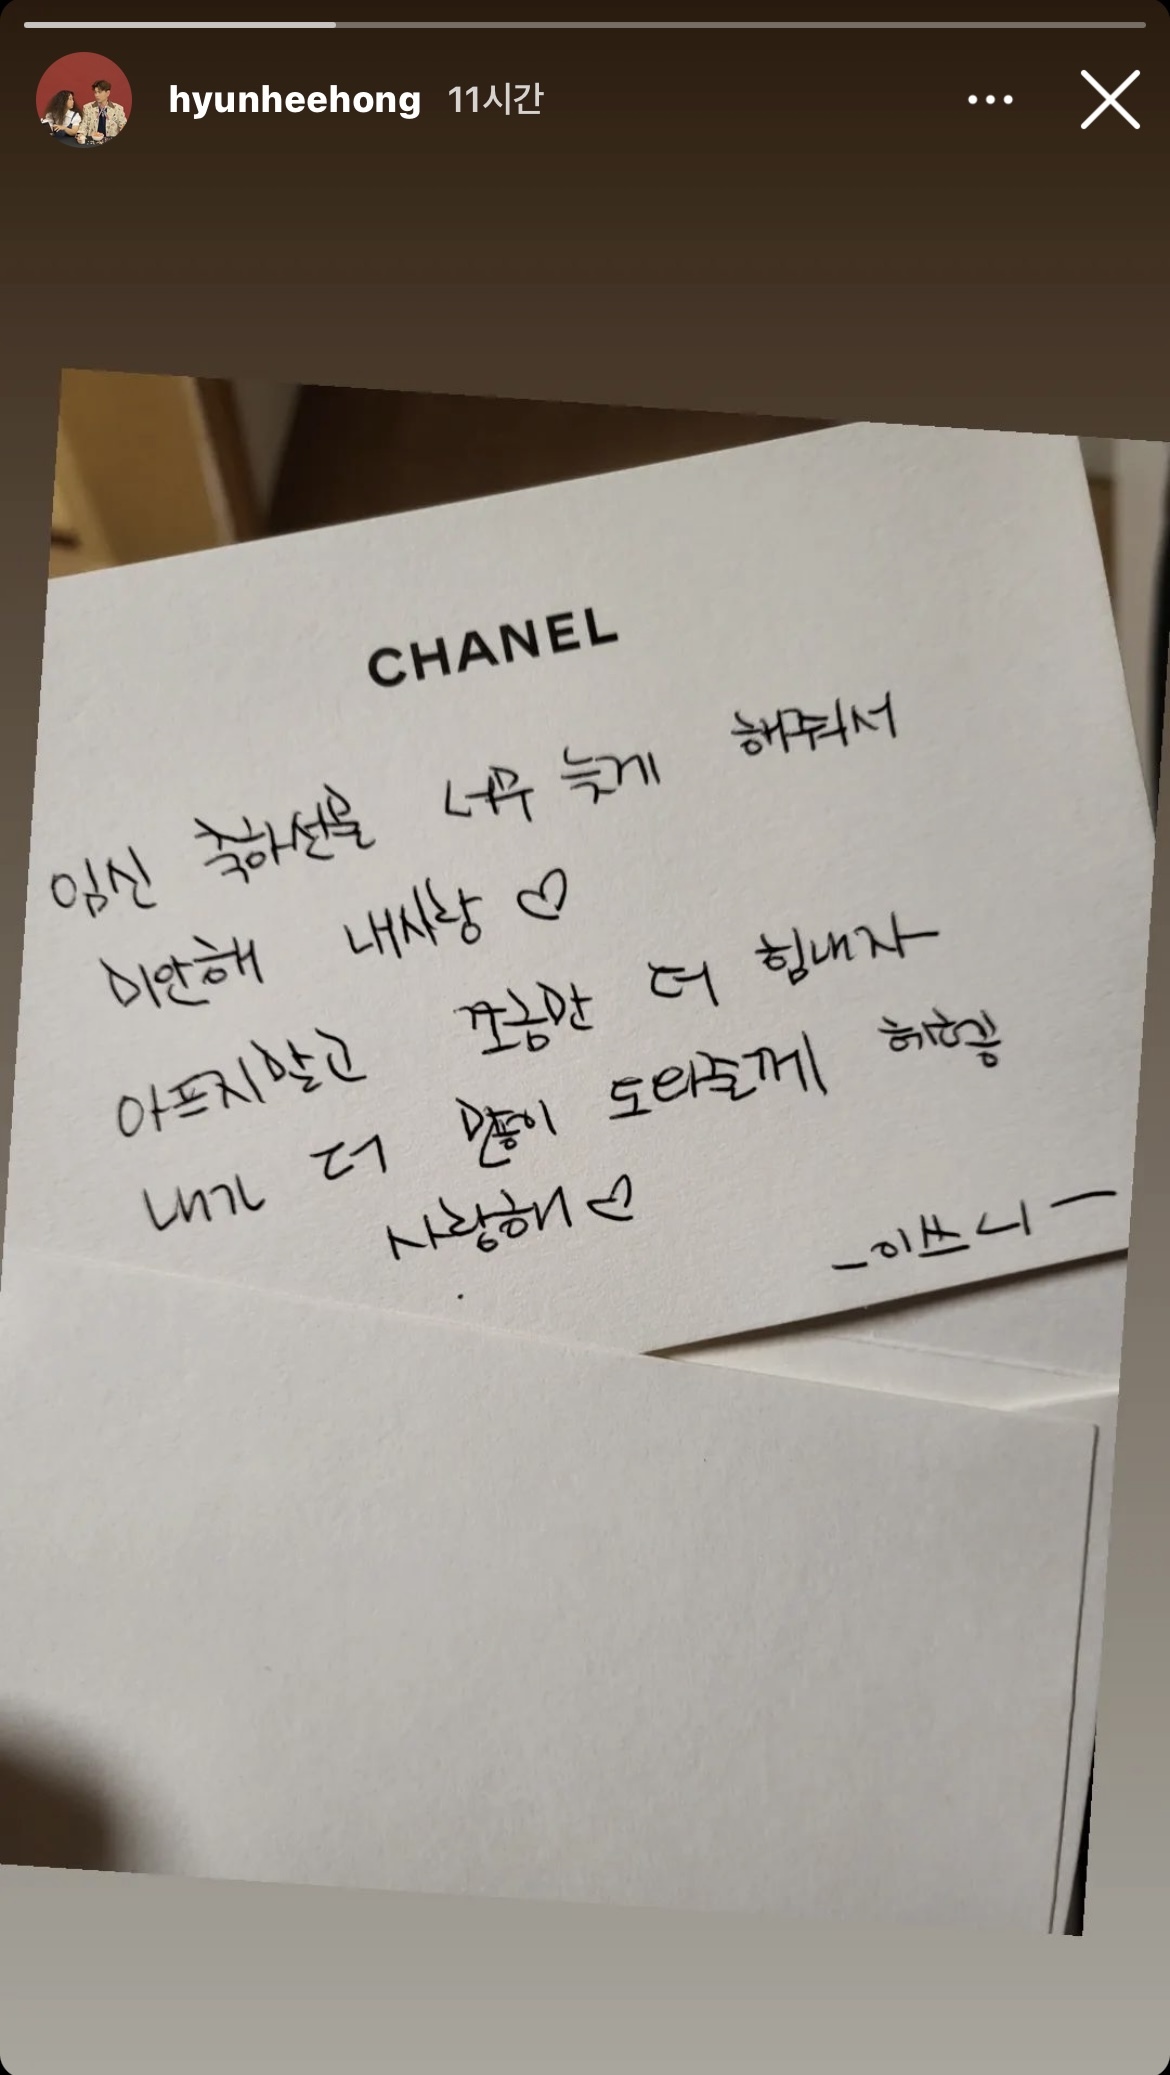 hyunheehong 11시간
CHANEL
임신 축하선물 너무 늦게 해줘서
미안해 내사랑♡
아프지말고 쪼금만 더 힘내자
내가 더 많이 도와줄께
사랑해♡
-이쓰니-